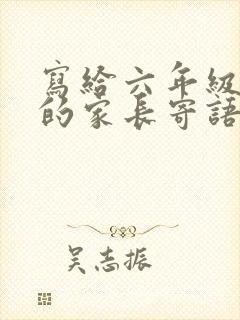 寫給六年級
的家長寄語
吴志振